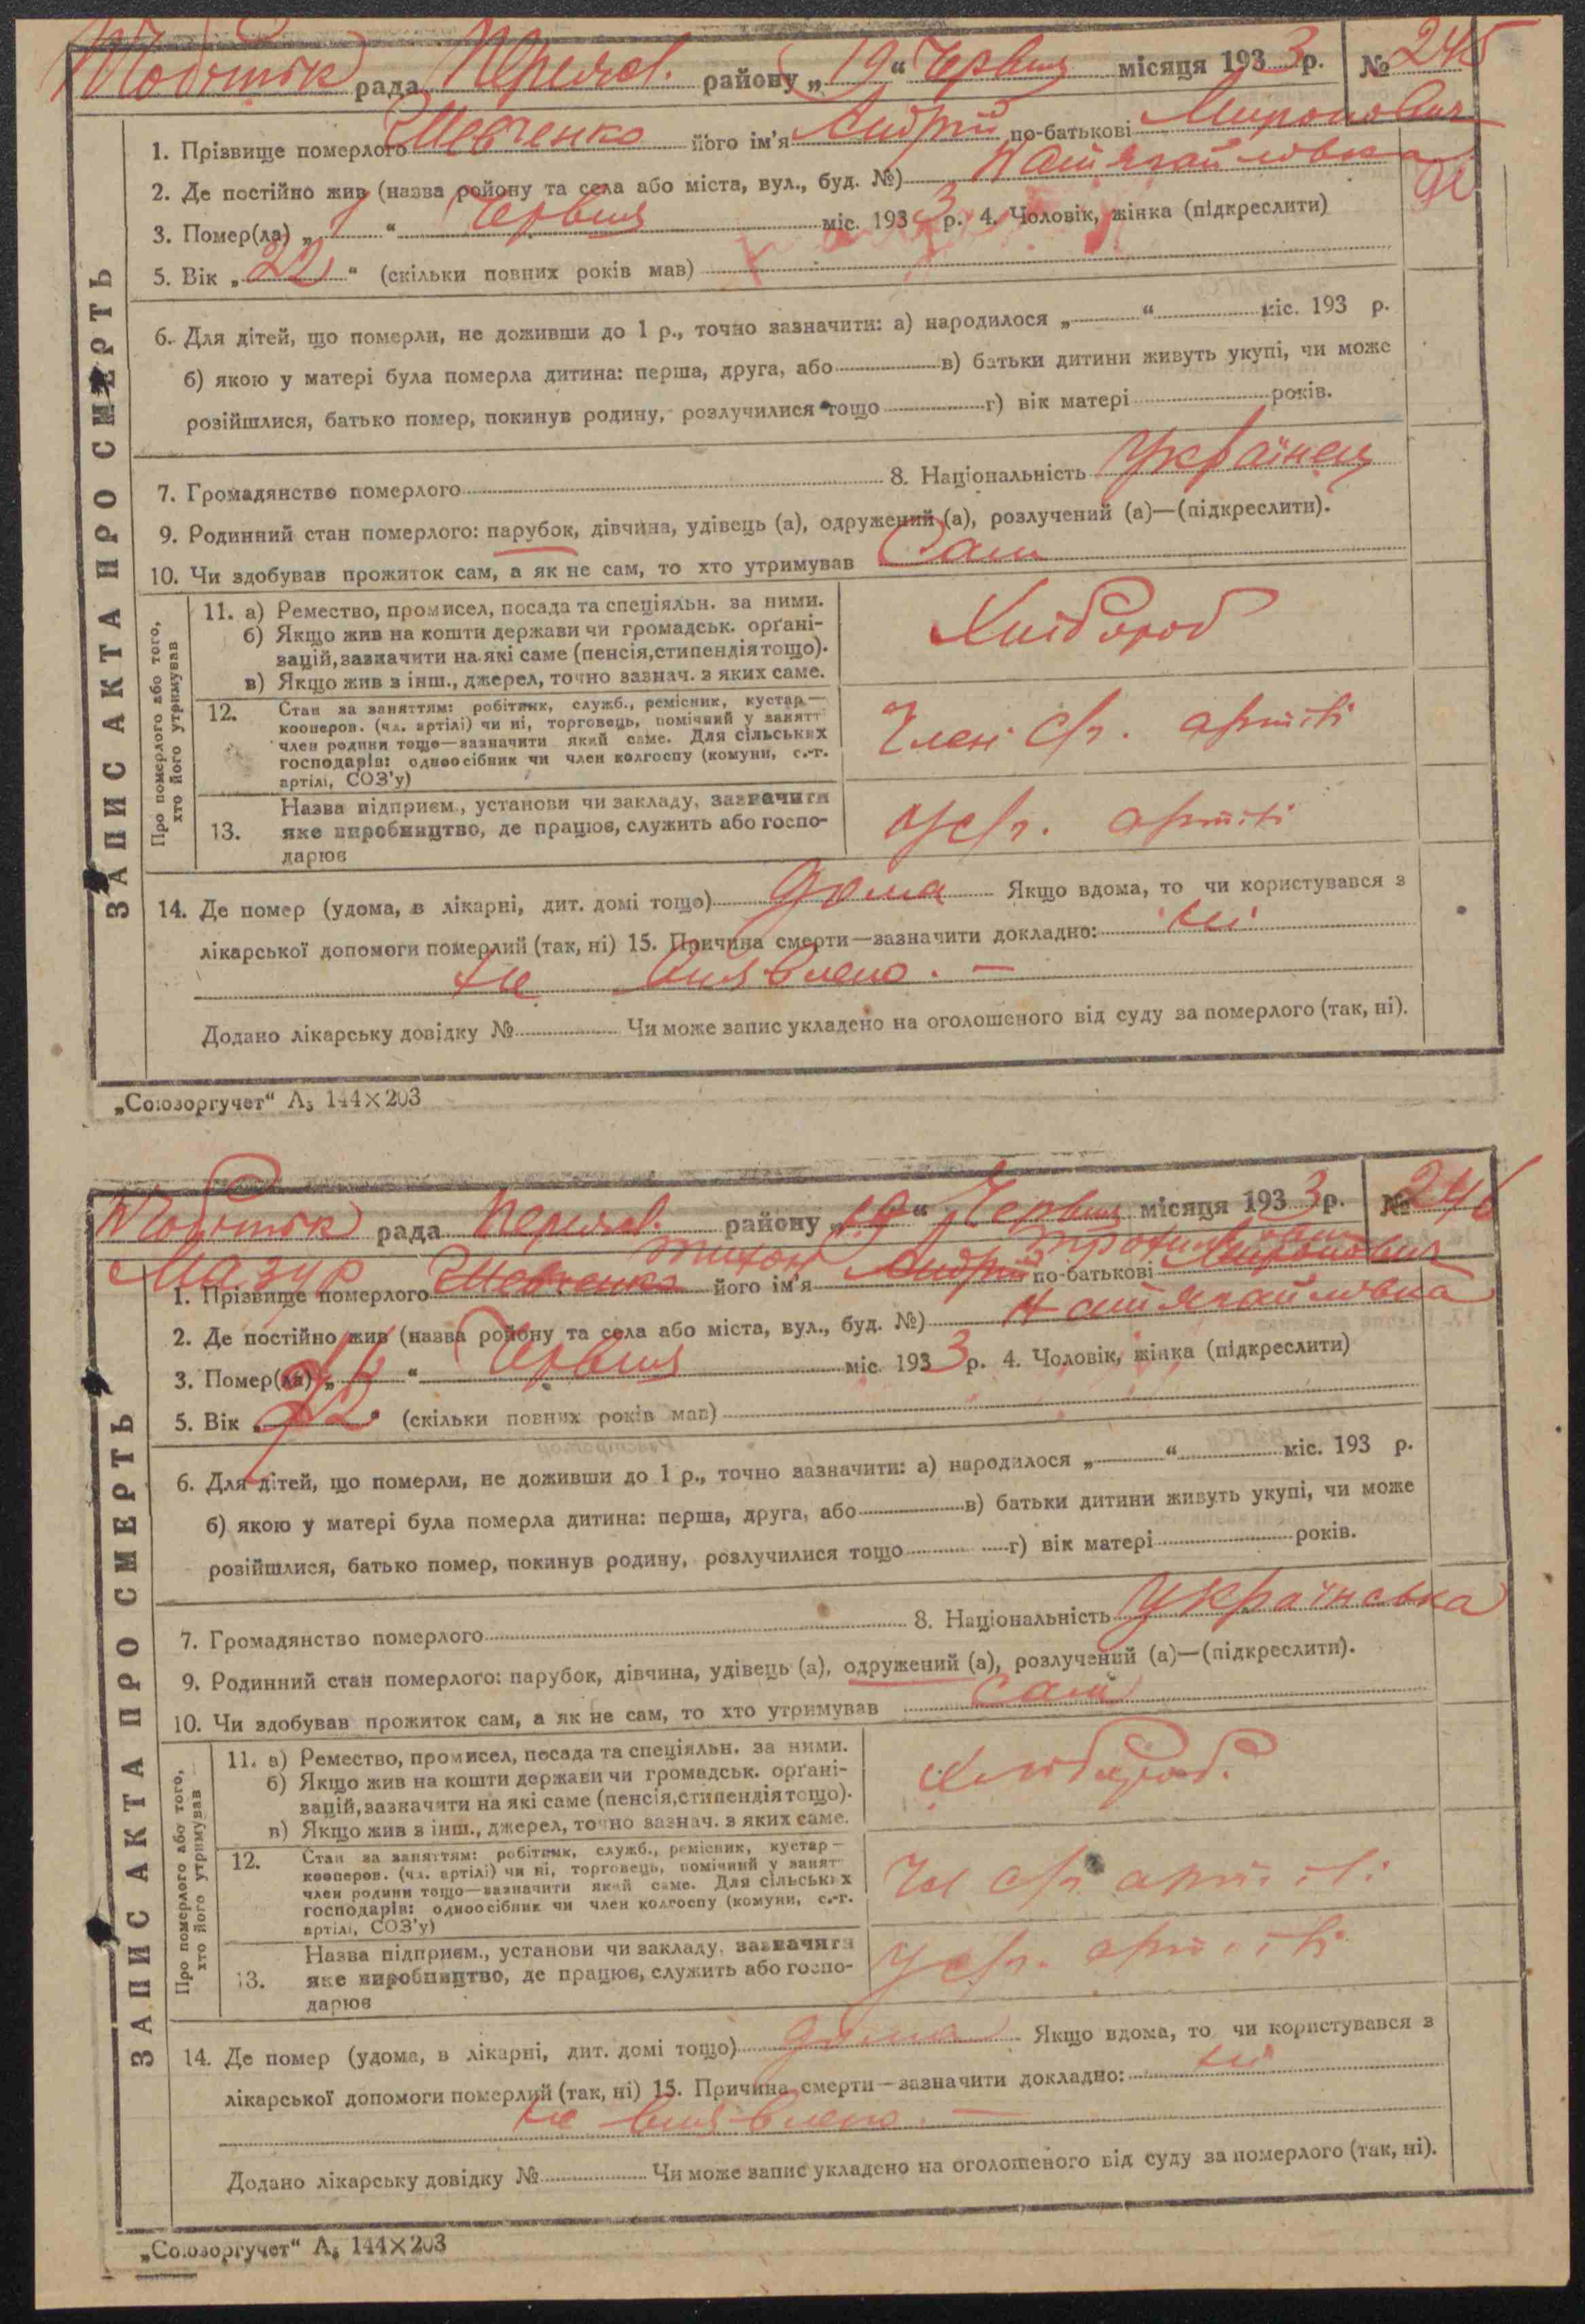 рада Переясл. району „19“ Червня місяця 1933 р. № 245
ЗАПИС АКТА ПРО СМЕРТЬ
1. Прізвище померлого Шевченко його ім'я Андрій по-батькові Миронович
2. Де постійно жив (назва ройону та села або міста, вул., буд. №)
3. Помер(ла) „1“ Червня міс. 1933 р. 4. Чоловік, жінка (підкреслити)
5. Вік „22“ (скільки повних років мав)
6. Для дітей, що померли, не доживши до 1 р., точно зазначити: а) народилося „ “ міс. 193 р.
б) якою у матері була померла дитина: перша, друга, або в) батьки дитини живуть укупі, чи може
розійшлися, батько помер, покинув родину, розлучилися тощо г) вік матері років.
7. Громадянство померлого 8. Національність Українец
9. Родинний стан померлого: парубок, дівчина, удівець (а), одружений (а), розлучений (а)—(підкреслити).
10. Чи здобував прожиток сам, а як не сам, то хто утримував Сам
Про померлого або того,
хто його утримував
11. а) Ремество, промисел, посада та спеціяльн. за ними.
б) Якщо жив на кошти держави чи громадськ. орґані-
зацій, зазначити на які саме (пенсія, стипендія тощо).
в) Якщо жив з інш., джерел, точно зазнач. з яких саме.
Хлібороб
12. Стан за заняттям: робітник, служб., ремісник, кустар—
кооперов. (чл. артілі) чи ні, торговець, помічний у занятт
член родини тощо—зазначити який саме. Для сільських
господарів: одноосібник чи член колгоспу (комуни, с.-г.
артілі, СОЗ'у)
Член с/г. артілі
13. Назва підприєм., установи чи закладу, зазначити
яке виробництво, де працює, служить або госпо-
дарює
У с/г. артілі
14. Де помер (удома, в лікарні, дит. домі тощо) дома Якщо вдома, то чи користувався з
лікарської допомоги померлий (так, ні) 15. Причина смерти—зазначити докладно: ні
не виявлено. —
Додано лікарську довідку № Чи може запис укладено на оголошеного від суду за померлого (так, ні).
„Союзоргучет“ А₅ 144×203
рада Переясл. району „19“ Червня місяця 1933 р. № 246
ЗАПИС АКТА ПРО СМЕРТЬ
Мазур Тихон
1. Прізвище померлого Шевченко його ім'я Андрій по-батькові Миронович
2. Де постійно жив (назва ройону та села або міста, вул., буд. №)
3. Помер(ла) „ “ Червня міс. 1933 р. 4. Чоловік, жінка (підкреслити)
5. Вік „ “ (скільки повних років мав)
6. Для дітей, що померли, не доживши до 1 р., точно зазначити: а) народилося „ “ міс. 193 р.
б) якою у матері була померла дитина: перша, друга, або в) батьки дитини живуть укупі, чи може
розійшлися, батько помер, покинув родину, розлучилися тощо г) вік матері років.
7. Громадянство померлого 8. Національність Українська
9. Родинний стан померлого: парубок, дівчина, удівець (а), одружений (а), розлучений (а)—(підкреслити).
10. Чи здобував прожиток сам, а як не сам, то хто утримував сам
Про померлого або того,
хто його утримував
11. а) Ремество, промисел, посада та спеціяльн. за ними.
б) Якщо жив на кошти держави чи громадськ. орґані-
зацій, зазначити на які саме (пенсія, стипендія тощо).
в) Якщо жив з інш., джерел, точно зазнач. з яких саме.
Хлібороб.
12. Стан за заняттям: робітник, служб., ремісник, кустар—
кооперов. (чл. артілі) чи ні, торговець, помічний у занят
член родини тощо—зазначити який саме. Для сільських
господарів: одноосібник чи член колгоспу (комуни, с.-г.
артілі, СОЗ'у)
Чл с/г артілі
13. Назва підприєм., установи чи закладу, зазначити
яке виробництво, де працює, служить або госпо-
дарює
У с/г. артілі
14. Де помер (удома, в лікарні, дит. домі тощо) дома Якщо вдома, то чи користувався з
лікарської допомоги померлий (так, ні) 15. Причина смерти—зазначити докладно: ні
не виявлено. —
Додано лікарську довідку № Чи може запис укладено на оголошеного від суду за померлого (так, ні).
„Союзоргучет“ А₅ 144×203